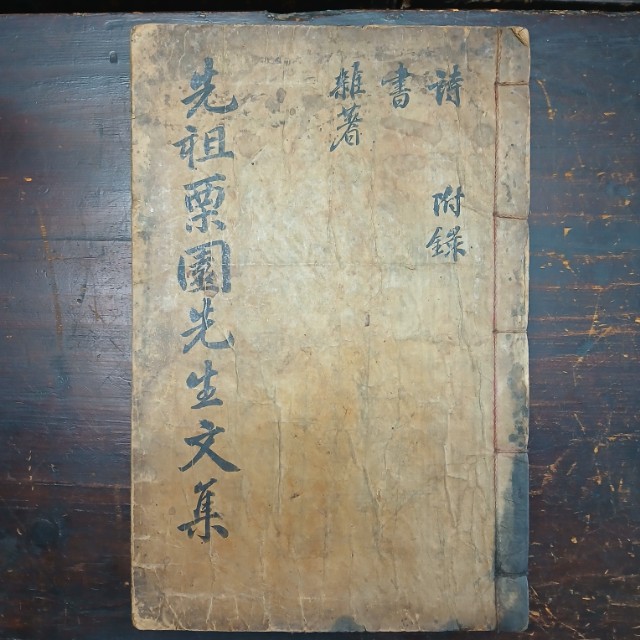 詩 附錄
書
雜著
先祖栗園先生文集